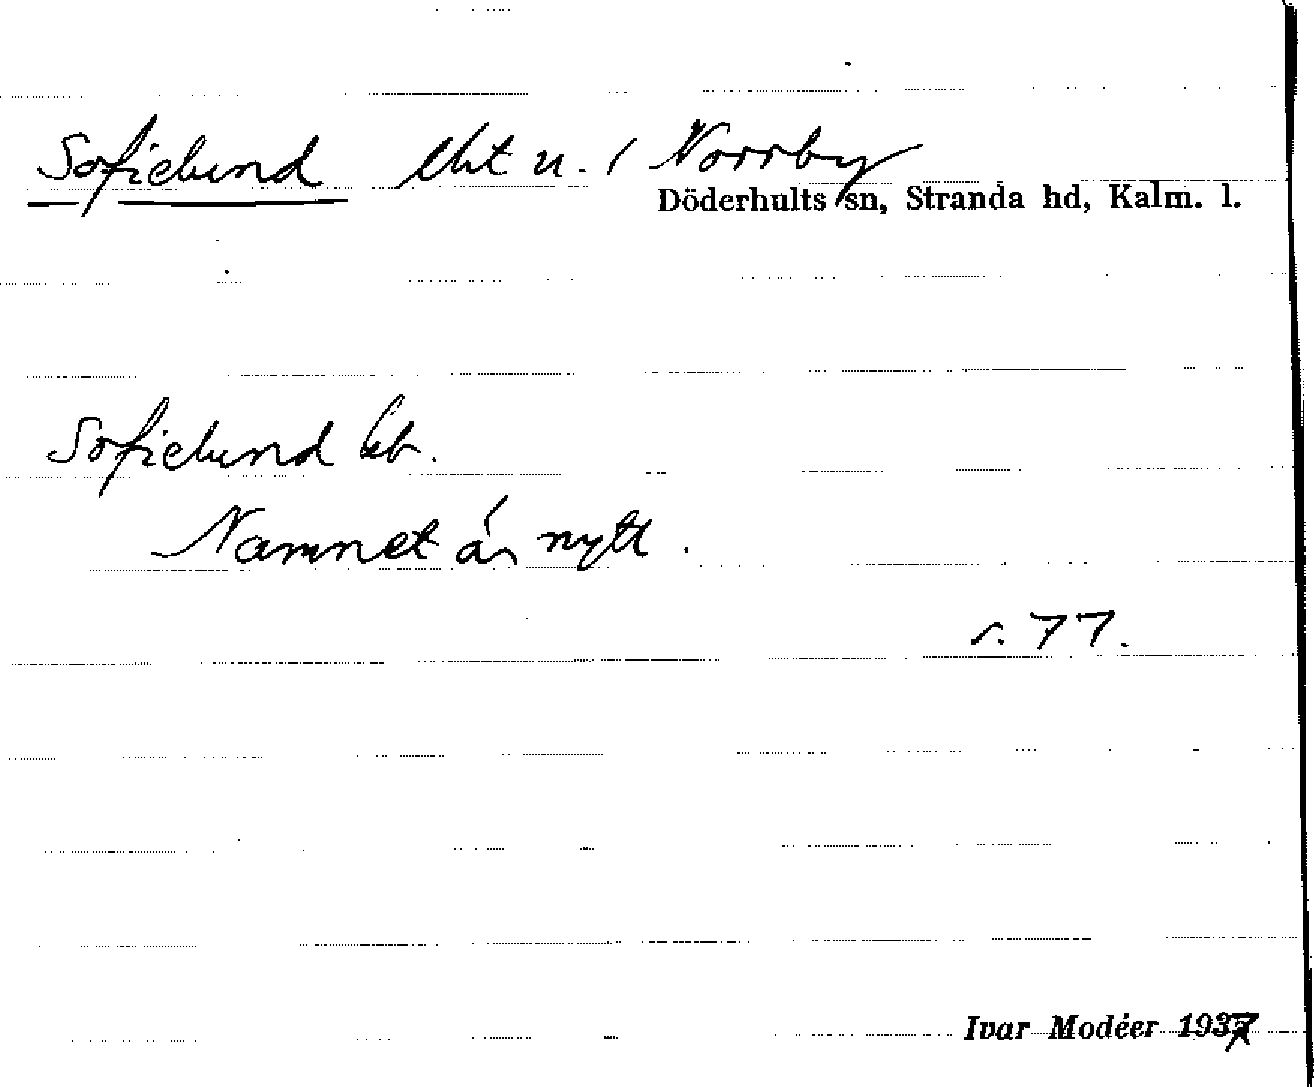 Sofielund lht u. / Norrby
Döderhults sn, Stranda hd, Kalm. l.
Sofielund
Namnet är nytt.
s. 77.
Ivar Modéer 1937